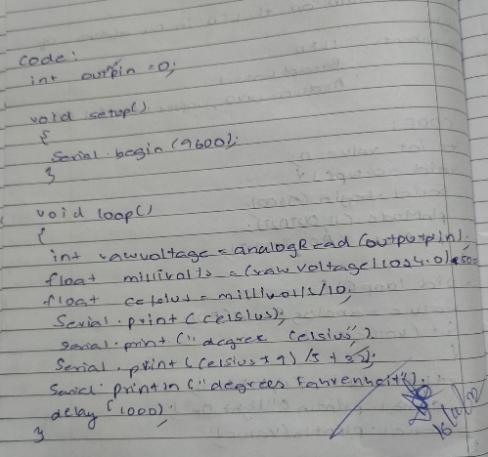 code:
int outpin = 0;
void setup()
{
Serial.begin(9600);
}
void loop()
{
int rawvoltage = analogRead(outputpin);
float millivolts = (rawvoltage/1024.0)
float celsius = millivolts/10;
Serial.print(celsius);
serial.print("degree celsius")
Serial.print((celsius * 9) /5 + 32);
Serial.println("degrees Fahrenheit");
delay(1000);
}